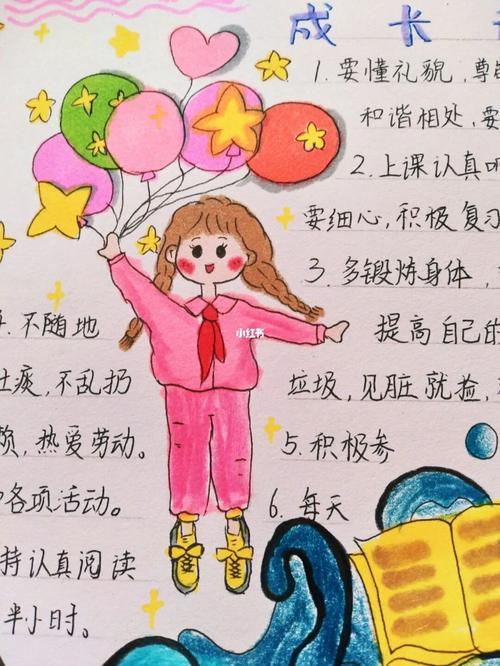 成长
1.要懂礼貌,尊
和谐相处,要
2.上课认真
要细心,积极复习
3.多锻炼身体,
提高自己的
小红书
不随地
吐痰,不乱扔
垃圾,见脏就捡,
热爱劳动。
5.积极参
各项活动。
6.每天
持认真阅读
半小时。